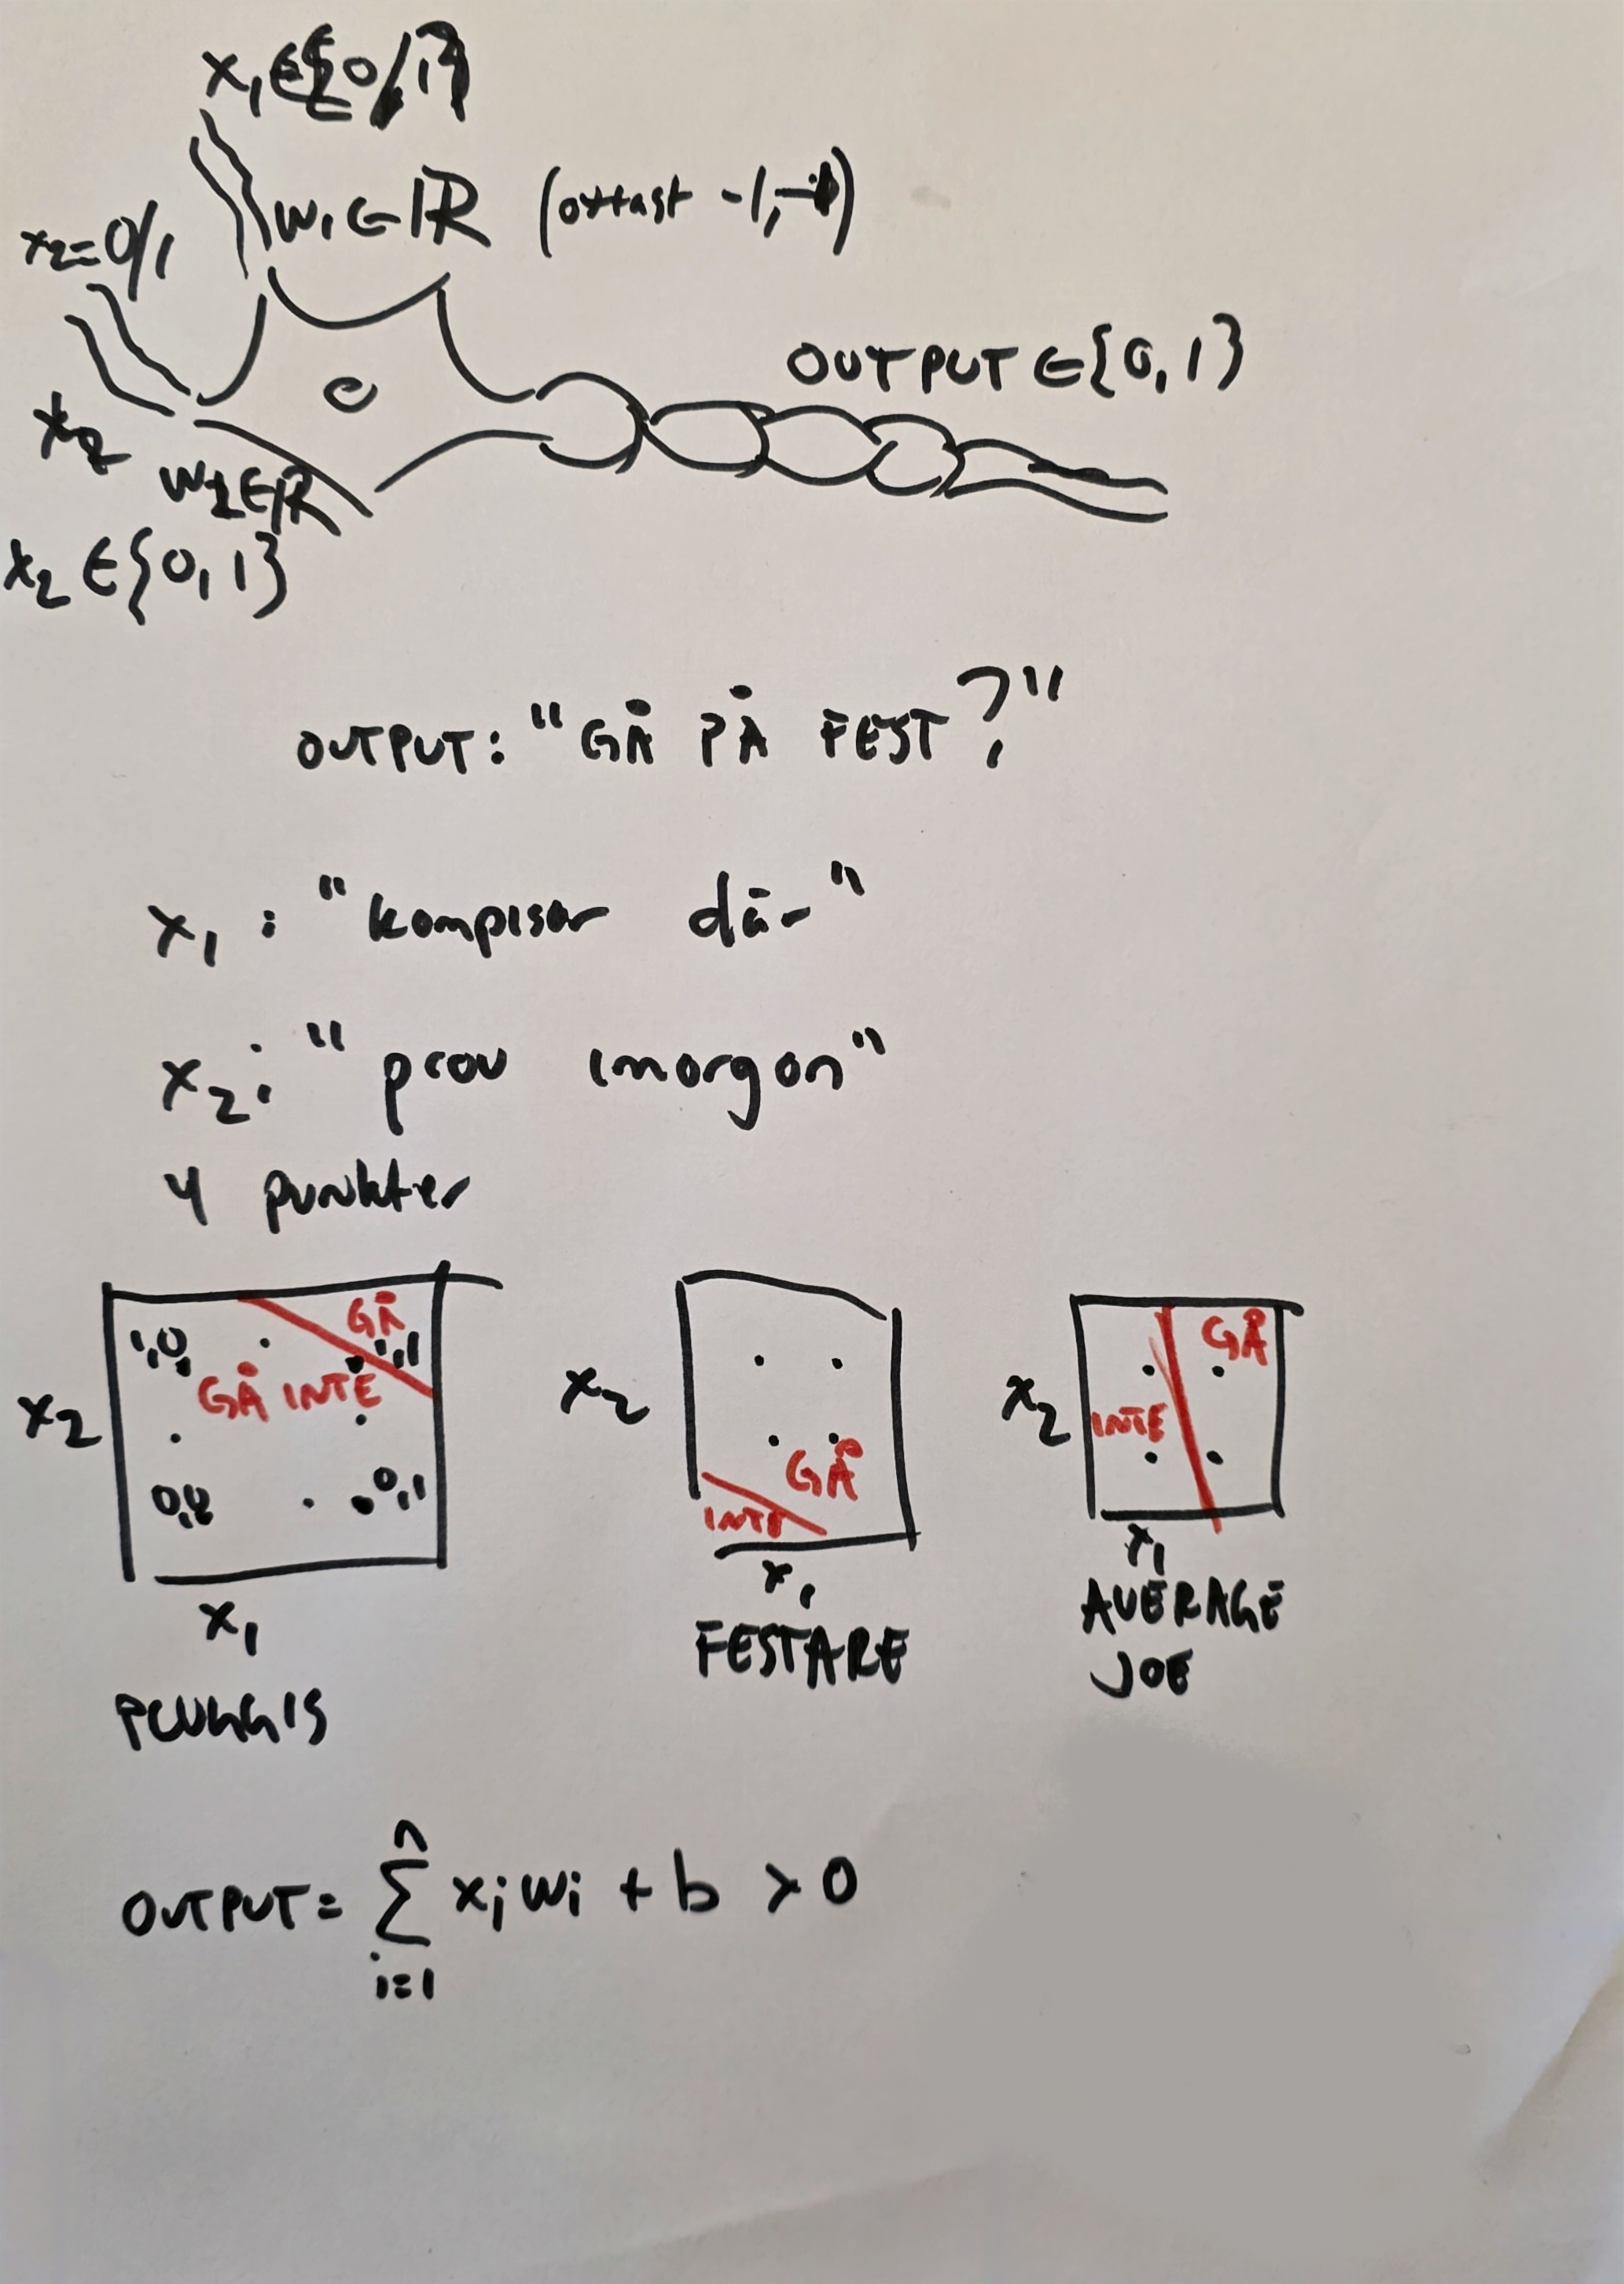 x₁∈{0/1}
w₁∈ℝ (oftast -1,1)
x₂=0/1
OUTPUT∈{0,1}
x₂
w₂∈ℝ
x₂∈{0,1}
OUTPUT: "GÅ PÅ FEST?"
x₁: "kompisar där"
x₂: "prov imorgon"
4 punkter
1,0 GÅ 1,1
GÅ INTE
x₂
0,0 0,1
x₁
PLUGGIS
x₂
GÅ
INTE
x₁
FESTARE
GÅ
x₂ INTE
x₁
AVERAGE
JOE
OUTPUT= ∑ⁿᵢ₌₁ xᵢwᵢ + b > 0